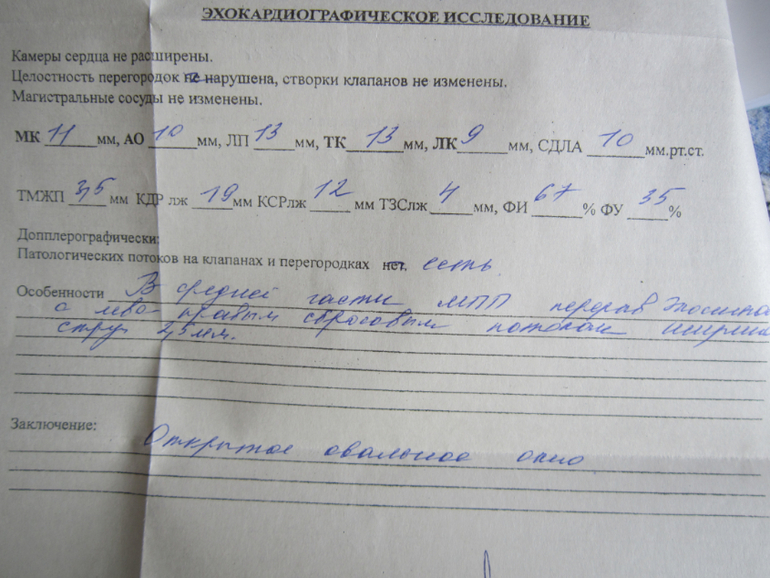 ЭХОКАРДИОГРАФИЧЕСКОЕ ИССЛЕДОВАНИЕ
Камеры сердца не расширены.
Целостность перегородок не нарушена, створки клапанов не изменены.
Магистральные сосуды не изменены.
МК 11 мм, АО 10 мм, ЛП 13 мм, ТК 13 мм, ЛК 9 мм, СДЛА 10 мм.рт.ст.
ТМЖП 3,5 мм КДР лж 19 мм КСРлж 12 мм ТЗСлж 4 мм, ФИ 67 % ФУ 35 %
Допплерографически:
Патологических потоков на клапанах и перегородках нет, есть
Особенности В средней части МПП перерыв
с лево правым сбросовым потоком
2,5 мм.
Заключение:
Открытое овальное окно